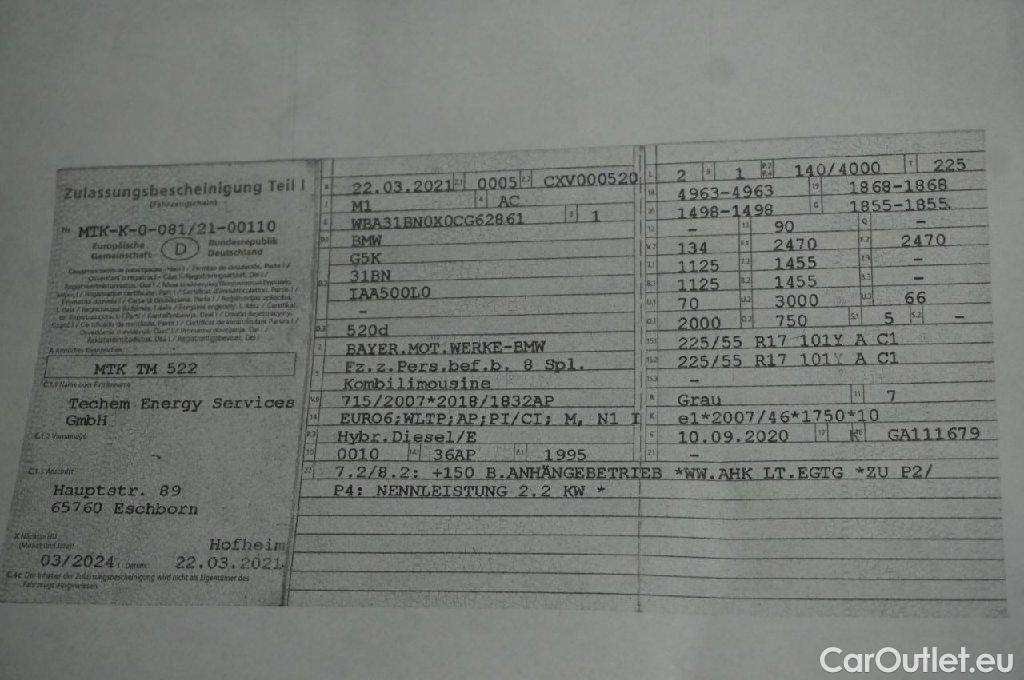 Zulassungsbescheinigung Teil I
(Fahrzeugschein)
Nr. MTK-K-0-081/21-00110
Europäische Gemeinschaft D Bundesrepublik Deutschland
A Amtliches Kennzeichen
MTK TM 522
C.1.1 Name oder Firmenname
Techem Energy Services
GmbH
C.1.2 Vorname(n)
C.1.3 Anschrift
Hauptstr. 89
65760 Eschborn
X Nächste HU
(Monat und Jahr)
Hofheim
03/2024 I Datum: 22.03.2021
C.4c Der Inhaber der Zulassungsbescheinigung wird nicht als Eigentümer des
Fahrzeugs ausgewiesen.
B 22.03.2021 2.1 0005 2.2 CXV000520
J M1 4 AC
E WBA31BN0X0CG62861 3 1
D.1 BMW
G5K
31BN
D.2 IAA500L0
–
D.3 520d
2 BAYER.MOT.WERKE-BMW
5 Fz.z.Pers.bef.b. 8 Spl.
Kombilimousine
V.9 715/2007*2018/1832AP
14 EURO6;WLTP;AP;PI/CI; M, N1 I
P.3 Hybr.Diesel/E
10 0010 14.1 36AP P.1 1995
22 7.2/8.2: +150 B.ANHÄNGEBETRIEB *WW.AHK LT.EGTG *ZU P2/
P4: NENNLEISTUNG 2.2 KW *
L 2 9 1 P.2 P.4 140/4000 T 225
18 4963-4963 19 1868-1868
20 1498-1498 G 1855-1855
12 – 13 90 Q –
V.7 134 F.1 2470 F.2 2470
7.1 1125 7.2 1455 7.3 –
8.1 1125 8.2 1455 8.3 –
U.1 70 U.2 3000 U.3 66
O.1 2000 O.2 750 S.1 5 S.2 –
15.1 225/55 R17 101Y A C1
15.2 225/55 R17 101Y A C1
15.3 –
R Grau 11 7
K e1*2007/46*1750*10
6 10.09.2020 17 K 16 GA111679
21 –
CarOutlet.eu